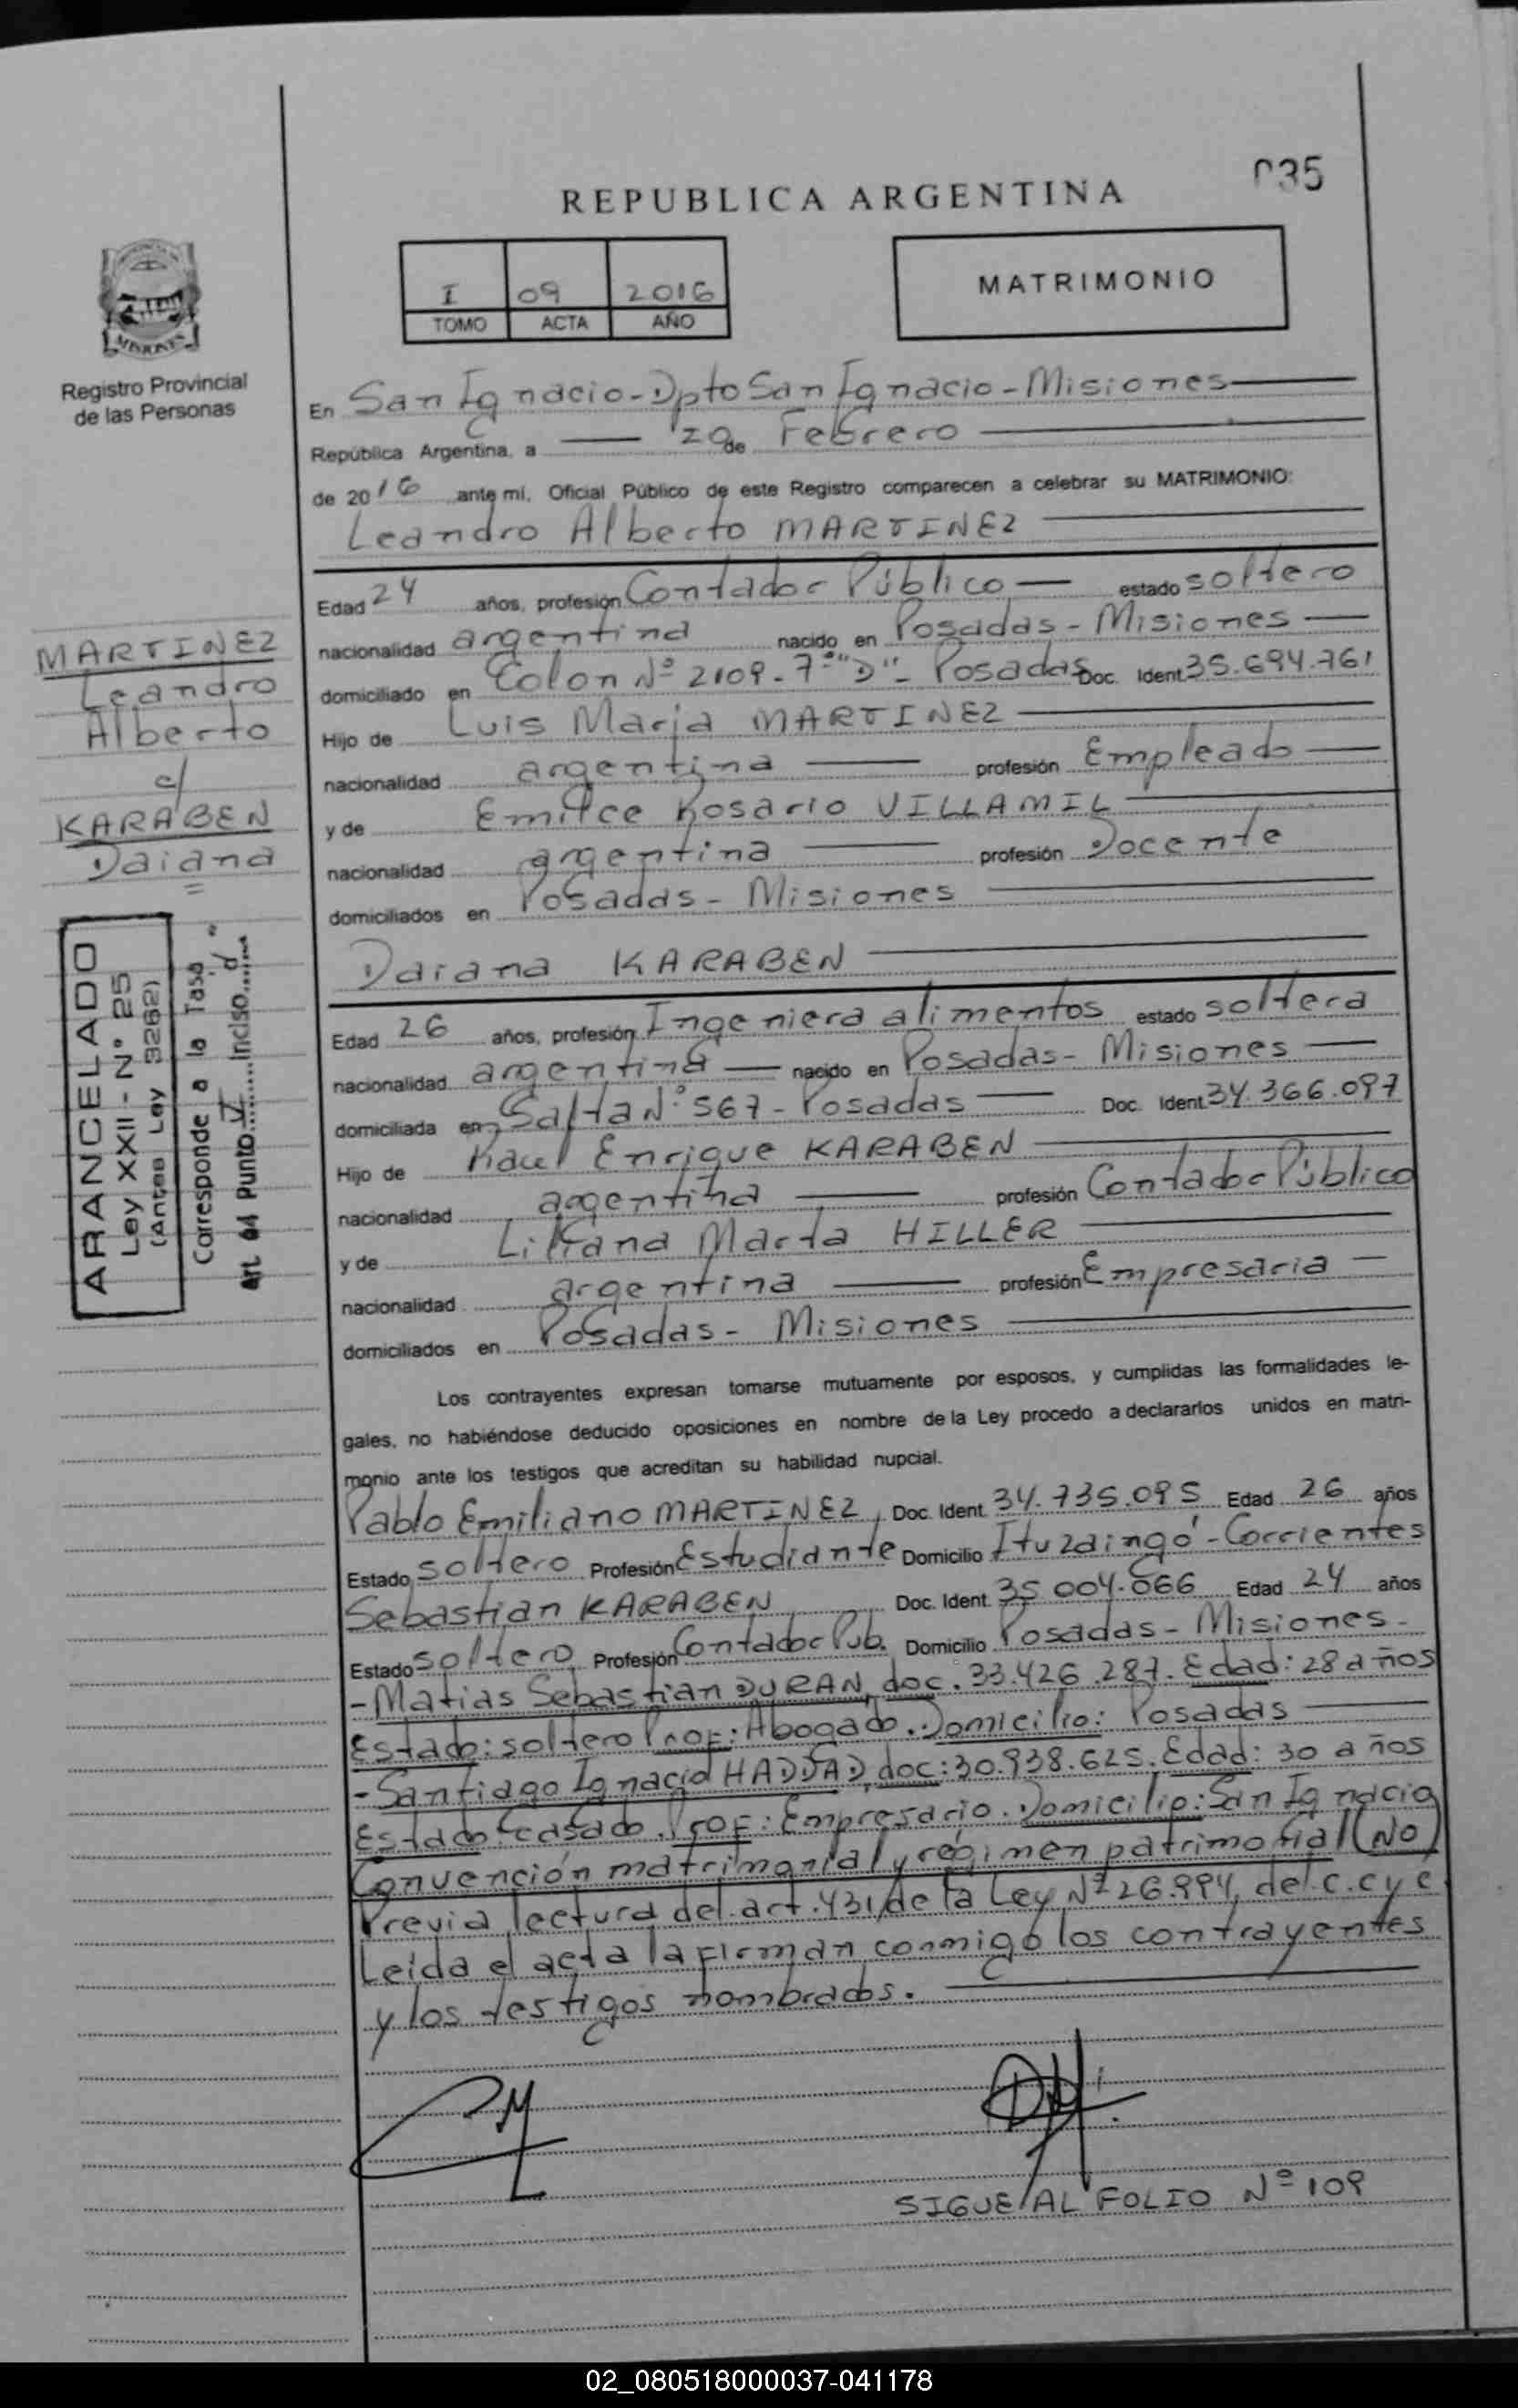 035
REPUBLICA ARGENTINA
I 09 2016
TOMO ACTA AÑO
MATRIMONIO
MISIONES
Registro Provincial
de las Personas
En San Ignacio - Dpto San Ignacio - Misiones
República Argentina, a 20 de Febrero
de 2016 ante mí, Oficial Público de este Registro comparecen a celebrar su MATRIMONIO:
Leandro Alberto MARTINEZ
Edad 24 años, profesión Contador Público estado soltero
nacionalidad argentina nacido en Posadas - Misiones
domiciliado en Colon Nº 2109 - 7º "D" - Posadas Doc. Ident. 35.694.761
Hijo de Luis Maria MARTINEZ
nacionalidad argentina profesión Empleado
y de Emilce Rosario VILLAMIL
nacionalidad argentina profesión Docente
domiciliados en Posadas - Misiones
Daiana KARABEN
Edad 26 años, profesión Ingeniera alimentos estado soltera
nacionalidad argentina nacido en Posadas - Misiones
domiciliada en Salta Nº 567 - Posadas Doc. Ident. 34.366.097
Hijo de Raul Enrique KARABEN
nacionalidad argentina profesión Contador Público
y de Liliana Marta HILLER
nacionalidad argentina profesión Empresaria
domiciliados en Posadas - Misiones
Los contrayentes expresan tomarse mutuamente por esposos, y cumplidas las formalidades le-
gales, no habiéndose deducido oposiciones en nombre de la Ley procedo a declararlos unidos en matri-
monio ante los testigos que acreditan su habilidad nupcial.
Pablo Emiliano MARTINEZ, Doc. Ident. 34.735.095 Edad 26 años
Estado soltero Profesión Estudiante Domicilio Ituzaingó - Corrientes
Sebastian KARABEN Doc. Ident. 35.004.066 Edad 24 años
Estado soltero Profesión Contador Pub. Domicilio Posadas - Misiones.
- Matias Sebastian DURAN, doc. 33.426.287. Edad: 28 años
Estado: soltero Prof: Abogado. Domicilio: Posadas
- Santiago Ignacio HADDAD, doc: 30.938.625. Edad: 30 años
Estado: casado. Prof: Empresario. Domicilio: San Ignacio
Convención matrimonial y régimen patrimonial (NO)
Previa lectura del art. 431 de la Ley Nº 26.994, del C.C y C
Leída el acta la firman conmigo los contrayentes
y los testigos nombrados.
SIGUE AL FOLIO Nº 109
MARTINEZ
Leandro
Alberto
c/
KARABEN
Daiana
=
ARANCELADO
Ley XXII - N° 25
(Antes Ley 3262)
Corresponde a la Tasa
Art. 04 Punto V Inciso "d"
02_080518000037-041178